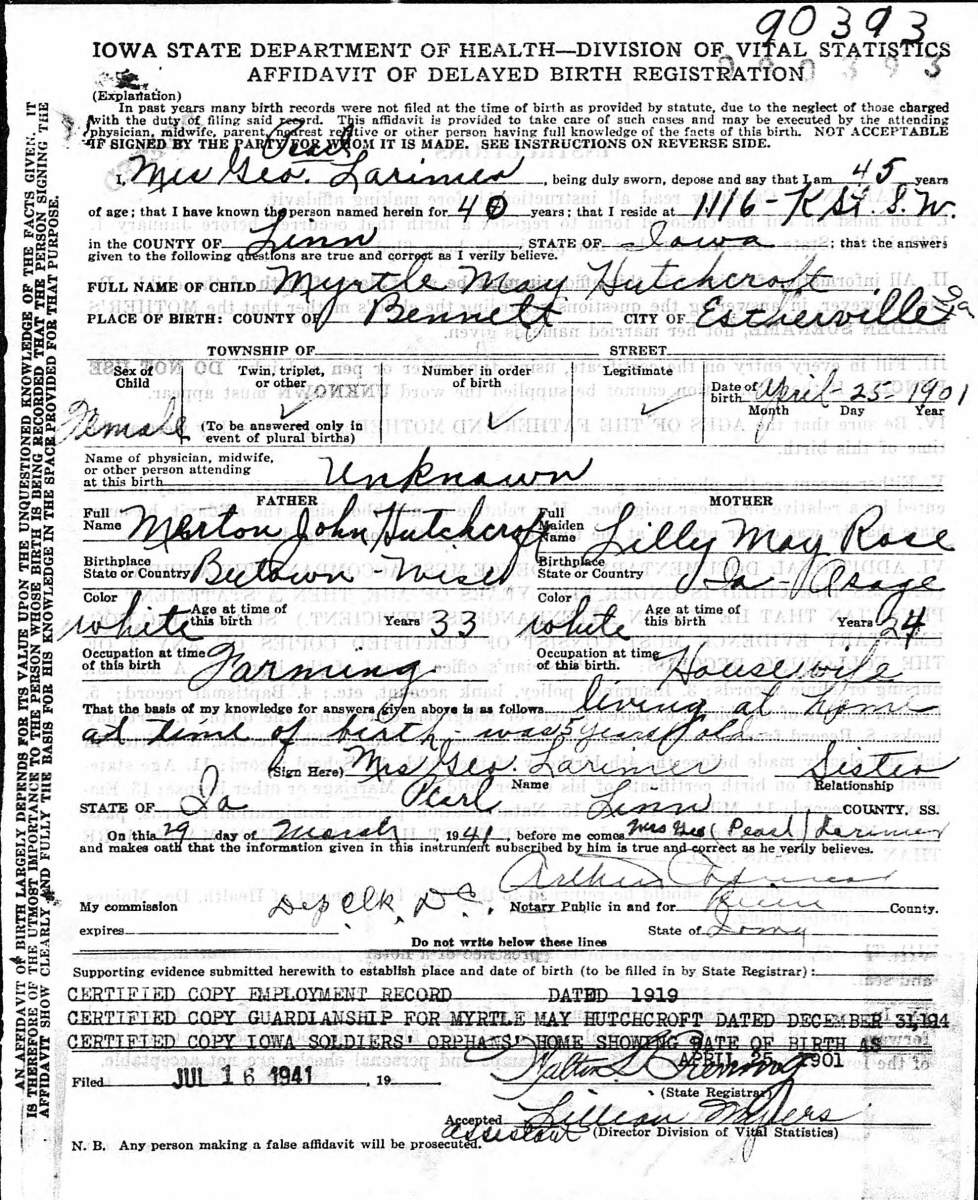 90393
IOWA STATE DEPARTMENT OF HEALTH—DIVISION OF VITAL STATISTICS
AFFIDAVIT OF DELAYED BIRTH REGISTRATION
(Explanation)
In past years many birth records were not filed at the time of birth as provided by statute, due to the neglect of those charged
with the duty of filing said record. This affidavit is provided to take care of such cases and may be executed by the attending
physician, midwife, parent, nearest relative or other person having full knowledge of the facts of this birth. NOT ACCEPTABLE
IF SIGNED BY THE PARTY FOR WHOM IT IS MADE. SEE INSTRUCTIONS ON REVERSE SIDE.
Pearl
I, Mrs Geo. Larimer, being duly sworn, depose and say that I am 45 years
of age; that I have known the person named herein for 40 years; that I reside at 1116-K St. S.W.
in the COUNTY OF Linn, STATE OF Iowa; that the answers
given to the following questions are true and correct as I verily believe.
FULL NAME OF CHILD Myrtle May Hutchcroft
PLACE OF BIRTH: COUNTY OF Bennett CITY OF Estherville Ia
TOWNSHIP OF STREET
Sex of Child Twin, triplet, or other Number in order of birth Legitimate Date of birth April-25-1901
Month Day Year
Female (To be answered only in event of plural births)
Name of physician, midwife,
or other person attending
at this birth Unknown
FATHER MOTHER
Full Name Merton John Hutchcroft Full Maiden Name Lilly May Rose
Birthplace State or Country Beetown Wisc Birthplace State or Country Ia-Osage
Color white Age at time of this birth Years 33 Color white Age at time of this birth Years 24
Occupation at time of this birth Farming Occupation at time of this birth Housewife
That the basis of my knowledge for answers given above is as follows living at home
at time of birth-was 5 years old-
(Sign Here) Mrs Geo. Larimer Sister
Pearl Relationship
STATE OF Ia Linn COUNTY. SS.
On this 29 day of March, 1941, before me comes Mrs Geo (Pearl) Larimer
and makes oath that the information given in this instrument subscribed by him is true and correct as he verily believes.
My commission Dep Clk. D.C. Notary Public in and for Linn County.
expires State of Iowa
Do not write below these lines
Supporting evidence submitted herewith to establish place and date of birth (to be filled in by State Registrar):
CERTIFIED COPY EMPLOYMENT RECORD DATED 1919
CERTIFIED COPY GUARDIANSHIP FOR MYRTLE MAY HUTCHCROFT DATED DECEMBER 31,194
CERTIFIED COPY IOWA SOLDIERS' ORPHANS' HOME SHOWING DATE OF BIRTH AS
APRIL 25, 1901
Filed JUL 16 1941, 19
(State Registrar)
Accepted Lillian Myers
assistant (Director Division of Vital Statistics)
N. B. Any person making a false affidavit will be prosecuted.
AN AFFIDAVIT OF BIRTH LARGELY DEPENDS FOR ITS VALUE UPON THE UNQUESTIONED KNOWLEDGE OF THE FACTS GIVEN. IT
IS THEREFORE OF THE UTMOST IMPORTANCE TO THE PERSON WHOSE BIRTH IS BEING RECORDED THAT THE PERSON SIGNING THE
AFFIDAVIT SHOW CLEARLY AND FULLY THE BASIS FOR HIS KNOWLEDGE IN THE SPACE PROVIDED FOR THAT PURPOSE.